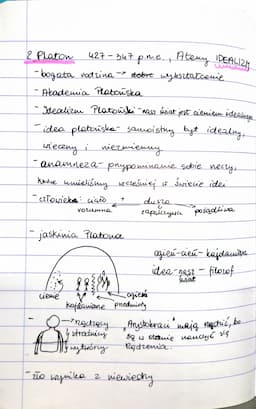 2 Platon 427-347 p.n.e., Ateny IDEALIZM
- bogata rodzina → dobre wykształcenie
- Akademia Platońska
- Idealizm Platoński - nasz świat jest cieniem idealnego
- idea platońska - samoistny byt idealny,
wieczny i niezmienny
- anamneza - przypominanie sobie rzeczy,
które umieliśmy wcześniej w świecie idei
- człowiek: ciało + dusza
rozumna zapalczywa pożądliwa
- jaskinia Platona
ogień - cień - kajdaniarze
idea - nasz świat - filozof
cienie kajdaniarze przedmioty ogień
- → rządzący
→ strażnicy
→ wytwórcy
"Arystokraci" mają rządzić, bo
są w stanie nauczyć się
rządzenia.
- zło wynika z niewiedzy